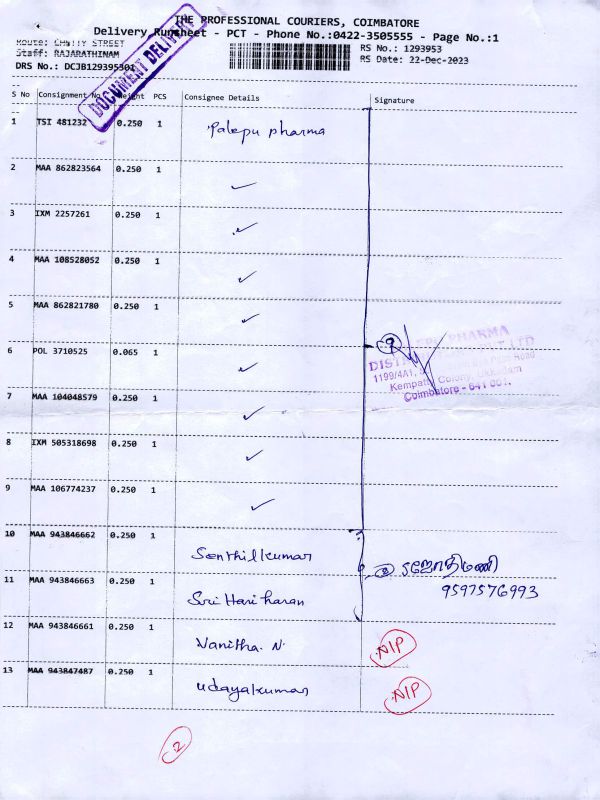 THE PROFESSIONAL COURIERS, COIMBATORE
Delivery Runsheet - PCT - Phone No.:0422-3505555 - Page No.:1
Route: CHETTY STREET
Staff: RAJARATHINAM
DRS No.: DCJB129395301
RS No.: 1293953
RS Date: 22-Dec-2023
DOCUMENT DELIVERY
S No Consignment No Weight PCS Consignee Details Signature
1 TSI 481232 0.250 1 Palepu pharma
2 MAA 862823564 0.250 1 ✓
3 IXM 2257261 0.250 1 ✓
4 MAA 108528052 0.250 1 ✓
5 MAA 862821780 0.250 1 ✓
6 POL 3710525 0.065 1 ✓
7 MAA 104048579 0.250 1 ✓
8 IXM 505318698 0.250 1 ✓
9 MAA 106774237 0.250 1 ✓
9
PHARMA
LTD
1199/4A1,
Road
Kempatty Colony, Ukkadam
Coimbatore - 641 001.
10 MAA 943846662 0.250 1 Senthilkumar
② ஜோதிமணி
11 MAA 943846663 0.250 1 Sri Hari haran
9597576993
12 MAA 943846661 0.250 1 Vanitha. N. NIP
13 MAA 943847487 0.250 1 udayakumar NIP
2